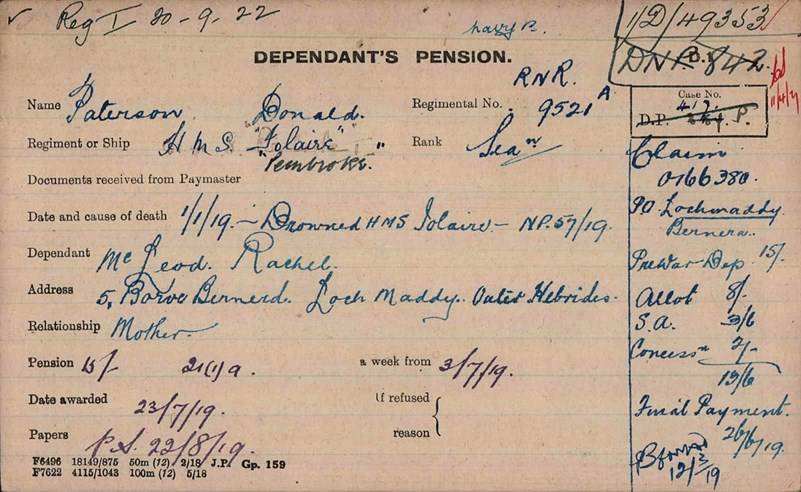 ✓ Reg I 30-9-22
Navy P.
1/D/49353
DEPENDANT'S PENSION.
DNP. B. 842.
11/4/21
Name Paterson Donald. Regimental No. RNR. 9521 A.
Case No.
417.
D.P. P.
Regiment or Ship HMS "Iolaire" Rank Sea n
"Pembroke."
Documents received from Paymaster
Date and cause of death 1/1/19. - Drowned HMS Iolaire - NP. 57/19.
Dependant McLeod. Rachel.
Address 5, Borve Bernerd. Loch Maddy. Outer Hebrides.
Relationship Mother.
Pension 15/- 21(1)a. a week from 3/7/19.
Date awarded 23/7/19. If refused
reason
Papers P.S. 22/8/19.
F6496 18149/875 50m (12) 2/18 J.P. Gp. 159
F7622 4115/1043 100m (12) 5/18
Claim
0166380.
P.O. Lochmaddy
Bernera.
PreWar Dep 15/-
Allot 8/-
S.A. 3/6
Concess n 2/-
13/6
Final Payment.
26/6/19.
12/2/19